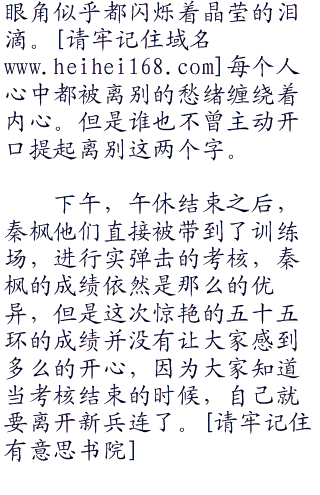 眼角似乎都闪烁着晶莹的泪
滴。[请牢记住域名
www.heihei168.com]每个人
心中都被离别的愁绪缠绕着
内心。但是谁也不曾主动开
口提起离别这两个字。
下午，午休结束之后，
秦枫他们直接被带到了训练
场，进行实弹击的考核，秦
枫的成绩依然是那么的优
异，但是这次惊艳的五十五
环的成绩并没有让大家感到
多么的开心，因为大家知道
当考核结束的时候，自己就
要离开新兵连了。[请牢记住
有意思书院]